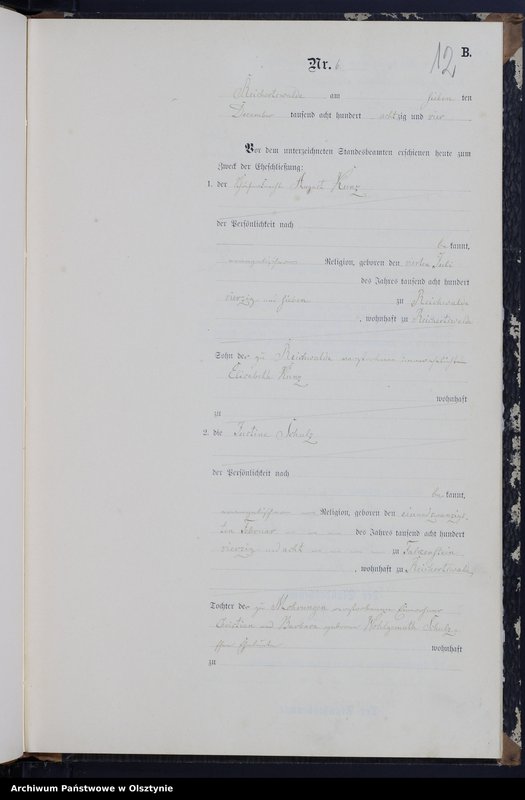 12
B.
Nr. 6.
Reichertswalde am sieben ten
December tausend acht hundert achtzig und vier
Vor dem unterzeichneten Standesbeamten erschienen heute zum
Zweck der Eheschließung:
1. der August Kunz
der Persönlichkeit nach
be kannt,
evangelischer Religion, geboren den vierten Juli
des Jahres tausend acht hundert
vierzig und sieben zu Reichwalde
, wohnhaft zu Reichertswalde
Sohn der zu Reichwalde verstorbenen unverehelichten
Elisabeth Kunz
wohnhaft
zu
2. die Justine Schulz
der Persönlichkeit nach
be kannt,
evangelischer Religion, geboren den einundzwanzig-
sten Februar des Jahres tausend acht hundert
vierzig und acht zu
, wohnhaft zu Reichertswalde
Tochter der zu Mohrungen verstorbenen Einwohner
Christian und Barbara geborene Wohlgemuth Schulz-
schen Eheleute wohnhaft
zu
Archiwum Państwowe w Olsztynie